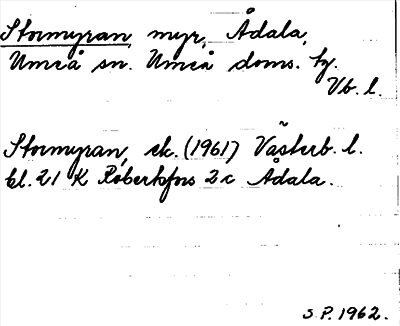 Stormyran, myr, Ådala,
Umeå sn. Umeå doms. tg.
Vb. l.
Stormyran, ek. (1961) Västerb. l.
bl. 21 K Robertsfors 2c Ådala.
S.P. 1962.